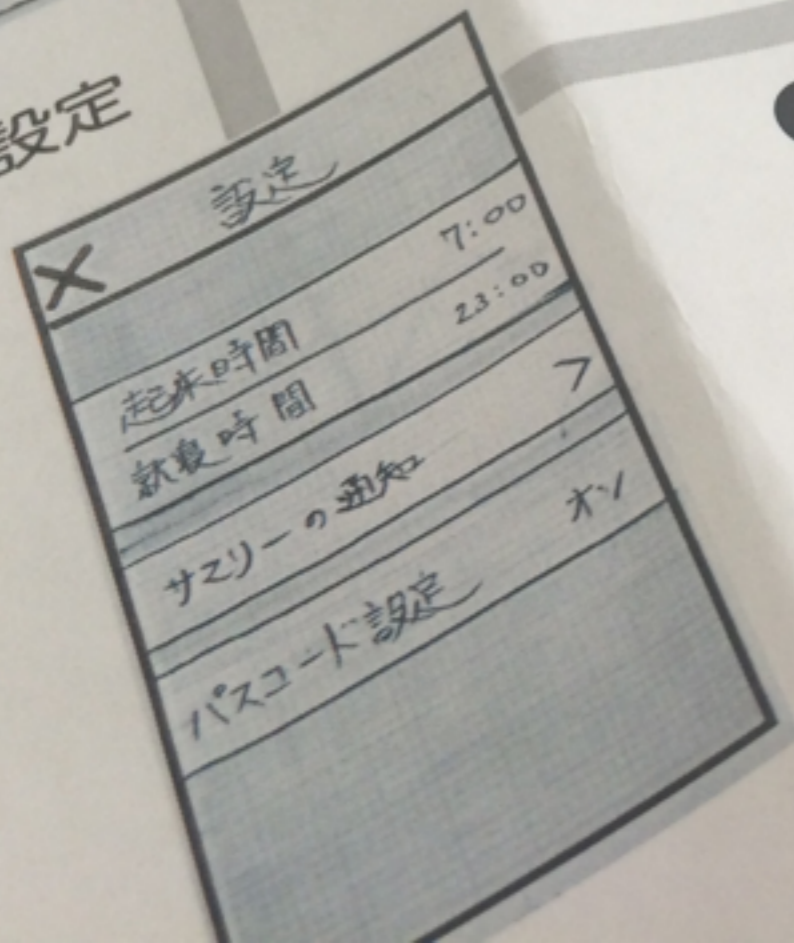 設定
設定
×
起床時間 7:00
就寝時間 23:00
サマリーの通知 >
パスコード設定 オン